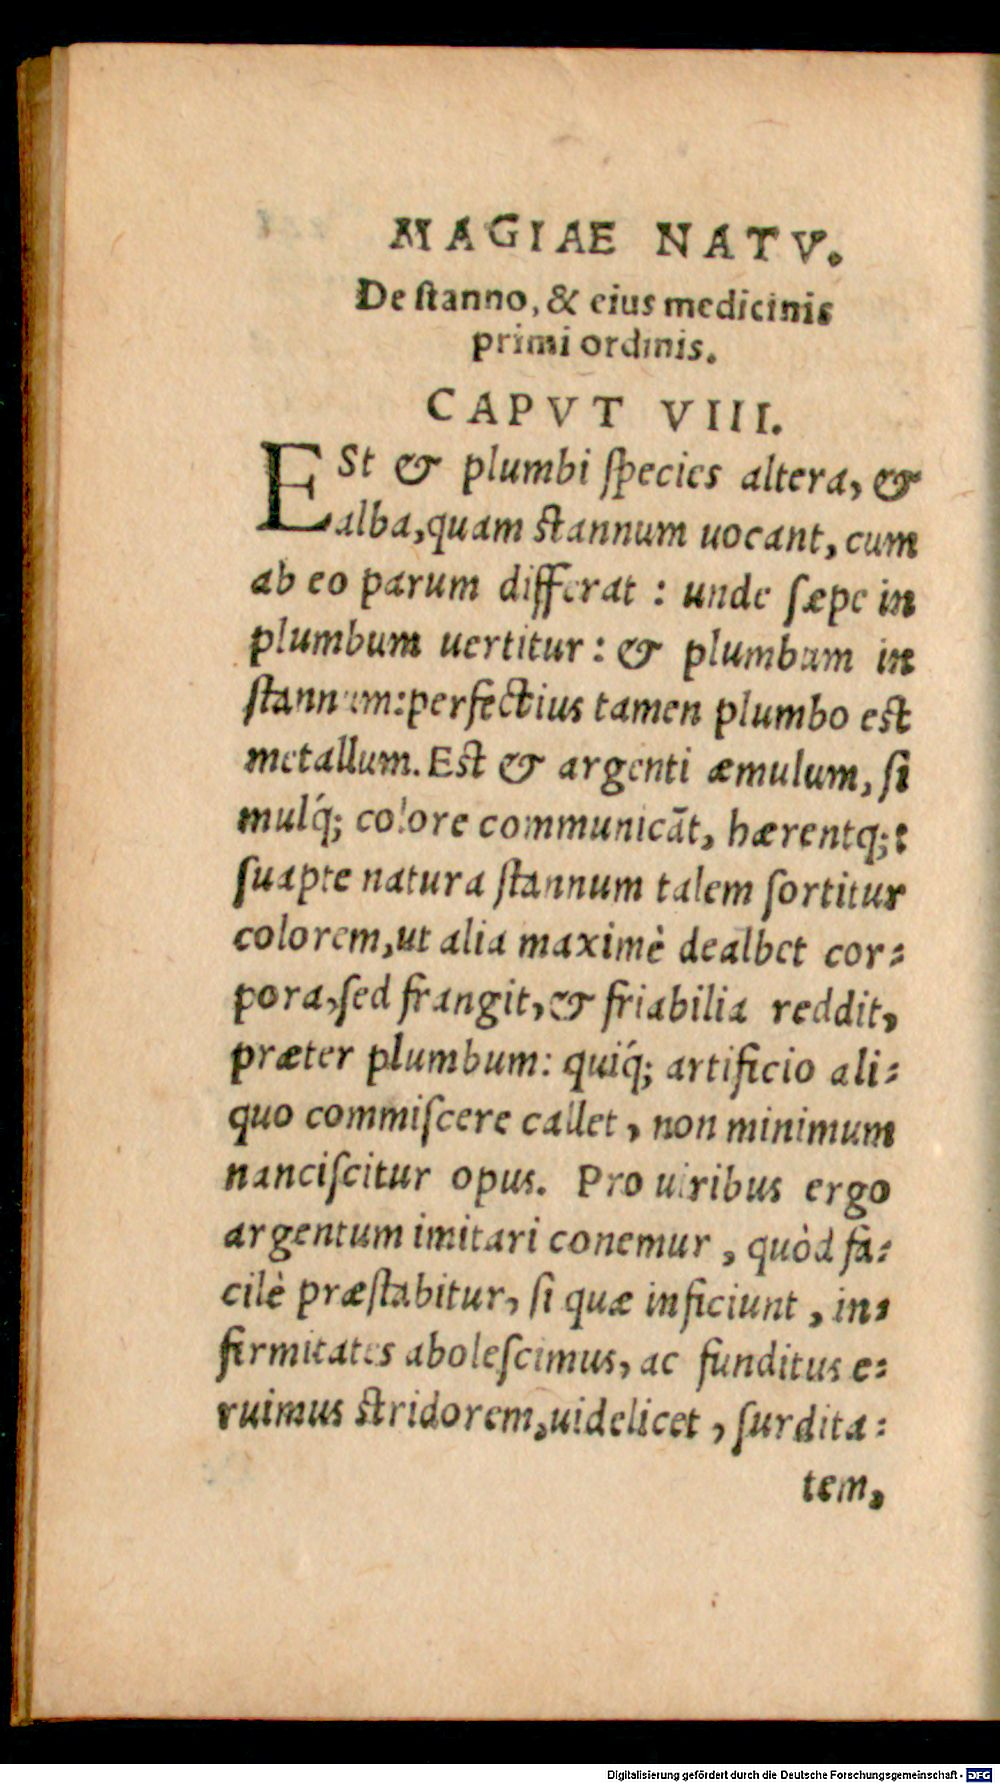 MAGIAE NATV.
De ſtanno, & eius medicinis
primi ordinis.
CAPVT VIII.
ESt & plumbi ſpecies altera, &
alba, quam ſtannum uocant, cum
ab eo parum differat : unde ſæpe in
plumbum uertitur : & plumbum in
ſtannum: perfectius tamen plumbo eſt
metallum. Eſt & argenti æmulum, ſi
mulq́; colore communicāt, hærentq; :
ſuapte natura ſtannum talem ſortitur
colorem, ut alia maximè dealbet cor-
pora, ſed frangit, & friabilia reddit,
præter plumbum: quiq́; artificio ali-
quo commiſcere callet, non minimum
nanciſcitur opus. Pro uiribus ergo
argentum imitari conemur, quòd fa-
cilè præſtabitur, ſi quæ inficiunt, in-
firmitates aboleſcimus, ac funditus e-
ruimus ſtridorem, uidelicet, ſurdita-
tem,
Digitalisierung gefördert durch die Deutsche Forschungsgemeinschaft - DFG